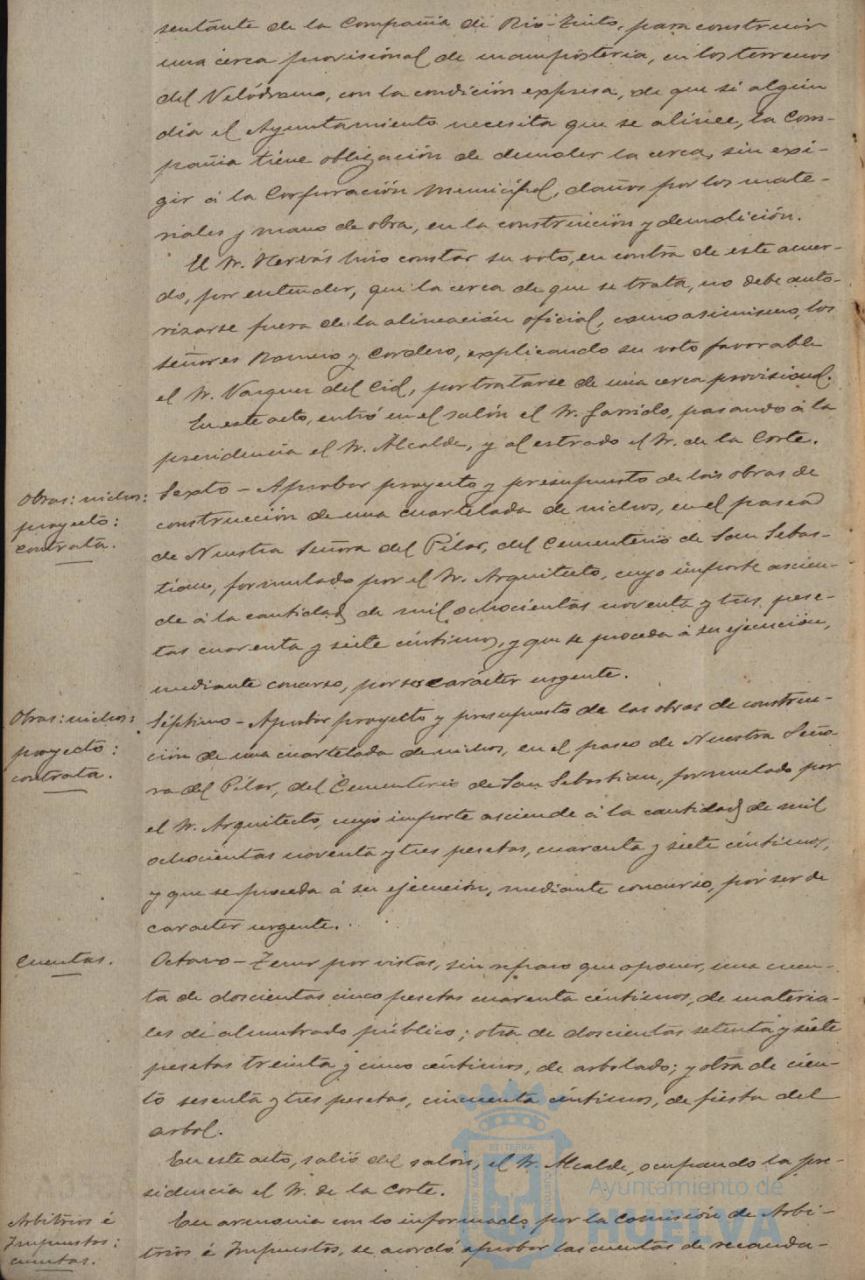 sentante de la Compañia de Rio-Tinto, para construir
una cerca provisional de mamposteria, en los terrenos
del Velódromo, con la condición expresa, de que si algún
dia el Ayuntamiento necesita que se alinee, la Com-
pañia tiene obligación de demoler la cerca, sin exi-
gir á la Corporación Municipal, daños por los mate-
riales y mano de obra, en la construcción y demolición.
El Sr. Hervás hizo constar su voto, en contra de este acuer-
do, por entender, que la cerca de que se trata, no debe auto-
rizarse fuera de la alineación oficial, como asimismo, los
señores Romero y Cordero, explicando su voto favorable
el Sr. Vazquez del Cid, por tratarse de una cerca provisional.
En este acto, entró en el salón el Sr. Garrido, pasando á la
presidencia el Sr. Alcalde, y al estrado el Sr. de la Corte.
Obras: nichos:
proyecto:
contrata.
Sexto - Aprobar proyecto y presupuesto de las obras de
construcción de una cuartelada de nichos, en el paseo
de Nuestra Señora del Pilar, del Cementerio de San Sebas-
tian, formulado por el Sr. Arquitecto, cuyo importe ascien-
de á la cantidad de mil ochocientas noventa y tres pese-
tas cuarenta y siete céntimos, y que se proceda á su ejecución,
mediante concurso, por su carácter urgente.
Obras: nichos:
proyecto:
contrata.
Séptimo - Aprobar proyecto y presupuesto de las obras de construc-
ción de una cuartelada de nichos, en el paseo de Nuestra Seño-
ra del Pilar, del Cementerio de San Sebastian, formulado por
el Sr. Arquitecto, cuyo importe asciende á la cantidad de mil
ochocientas noventa y tres pesetas, cuarenta y siete céntimos,
y que se proceda á su ejecución, mediante concurso, por ser de
caracter urgente.
Cuentas.
Octavo - Tener por vistas, sin reparo que oponer, una cuen-
ta de doscientas cinco pesetas cuarenta céntimos, de materia-
les de alumbrado público; otra de doscientas setenta y siete
pesetas treinta y cinco céntimos, de arbolado; y otra de cien-
to sesenta y tres pesetas, cincuenta céntimos, de fiesta del
arbol.
En este acto, salió del salón, el Sr. Alcalde, ocupando la pre-
sidencia el Sr. de la Corte.
Arbitrios é
Impuestos:
cuentas.
En armonia con lo informado, por la Comisión de Arbi-
trios é Impuestos, se acordó aprobar las cuentas de recauda-
Ayuntamiento de
HUELVA